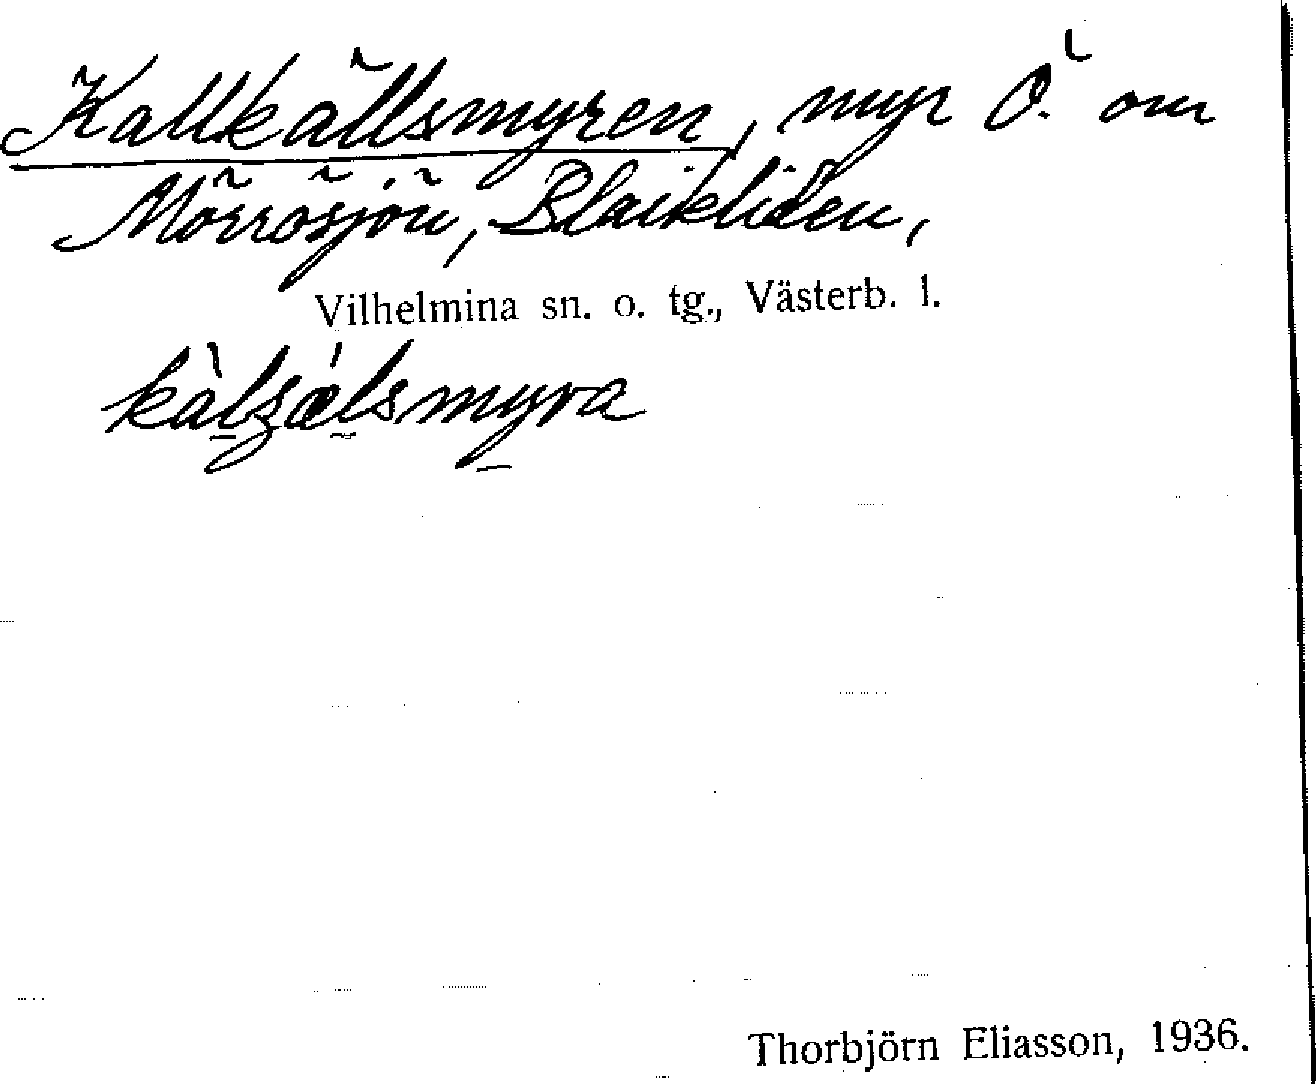 Kallkällsmyren, myr Ö. om
Mörrösjön, Blaikliden,
Vilhelmina sn. o. tg., Västerb. l.
kàlʒǽlsmyra
Thorbjörn Eliasson, 1936.